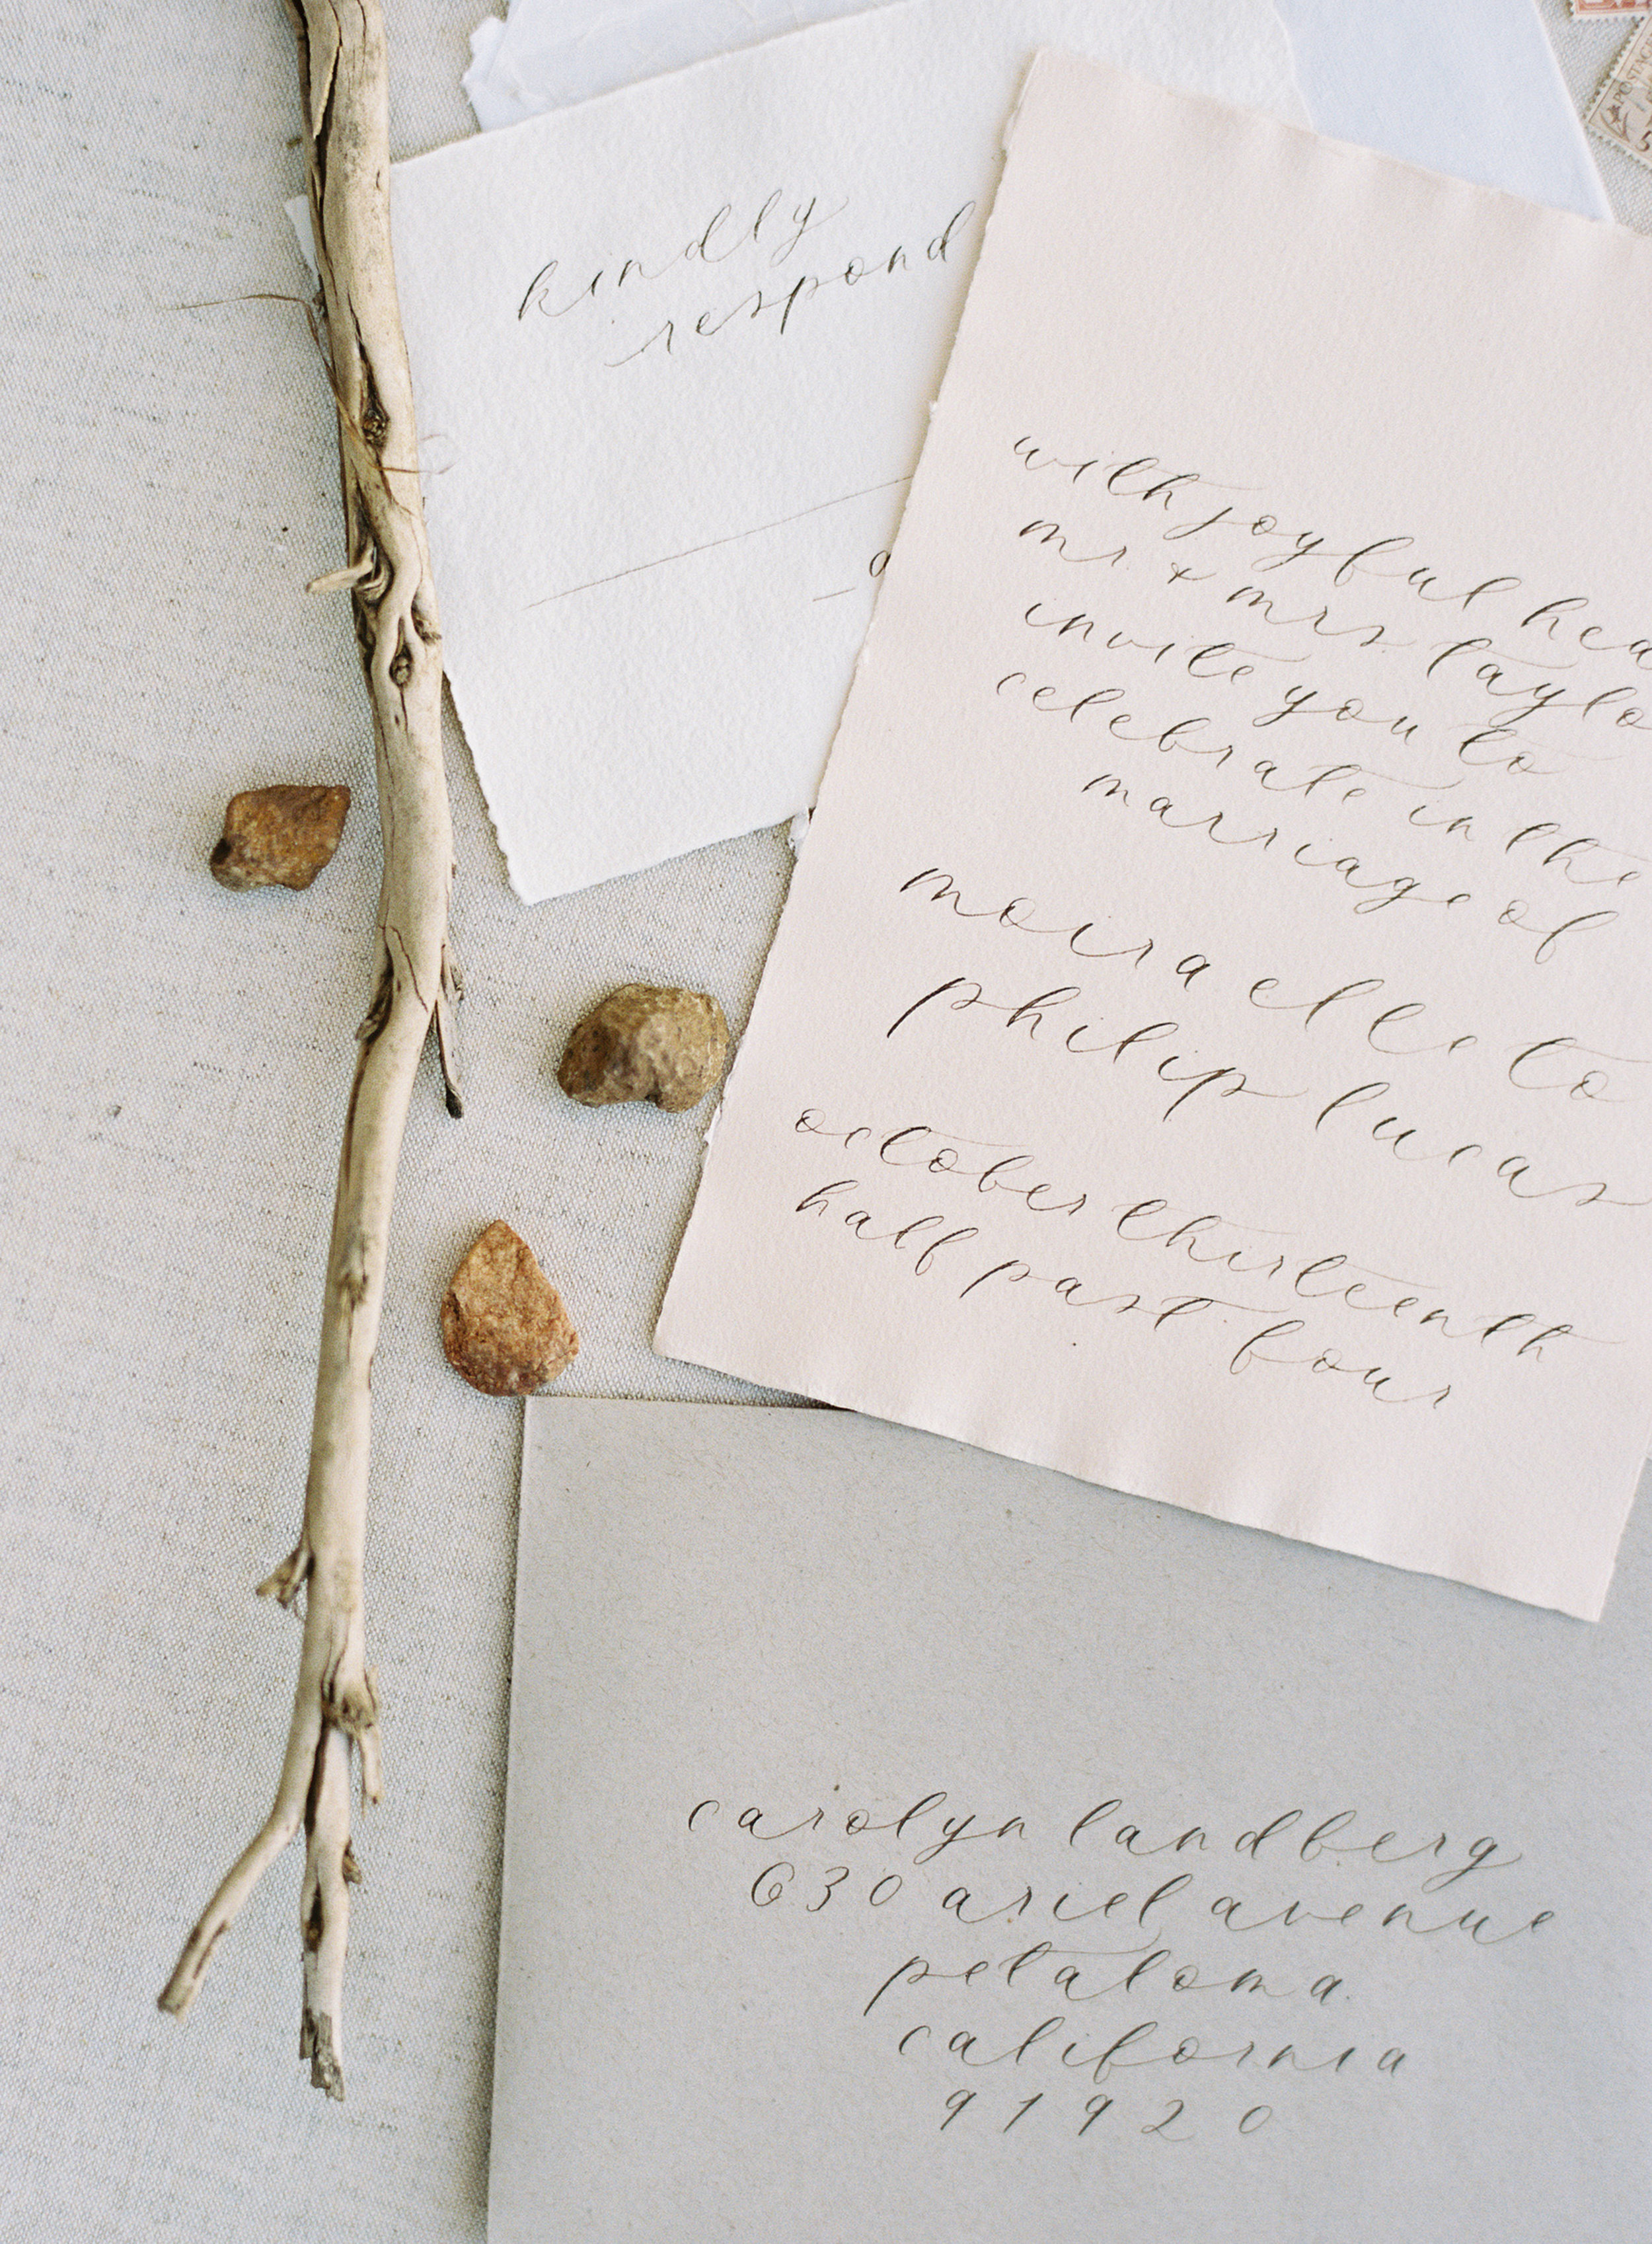 kindly
respond
with joyful hea
mr & mrs taylo
invite you to
celebrate in the
marriage of
moira elle to
philip lucas
october thirteenth
half past four
carolyn landberg
630 ariel avenue
petaloma
california
91920
POSTAGE